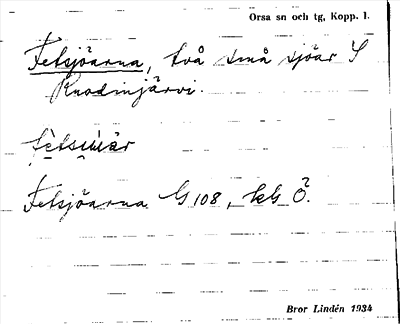 Orsa sn och tg, Kopp. l.
Fetsjöarna, två små sjöar S
Knodinjärvi.
Fetsjöarna G 108, kG Ö?.
Bror Lindén 1934